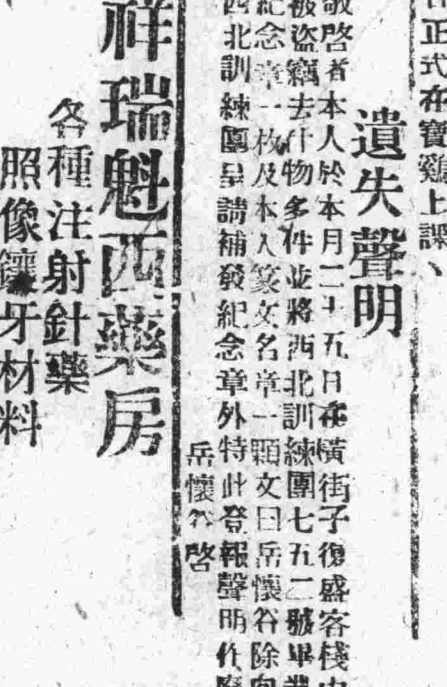 正式在寶雞上課、
遺失聲明
敬啓者本人於本月二十五日在橫街子復盛客棧
被盜竊去什物多件並將西北訓練團七五二號畢業
紀念章一枚及本人篆文名章一顆文曰岳懷谷除向
西北訓練團呈請補發紀念章外特此登報聲明作廢
岳懷谷啓
祥瑞魁西藥房
各種注射針藥
照像鑲牙材料